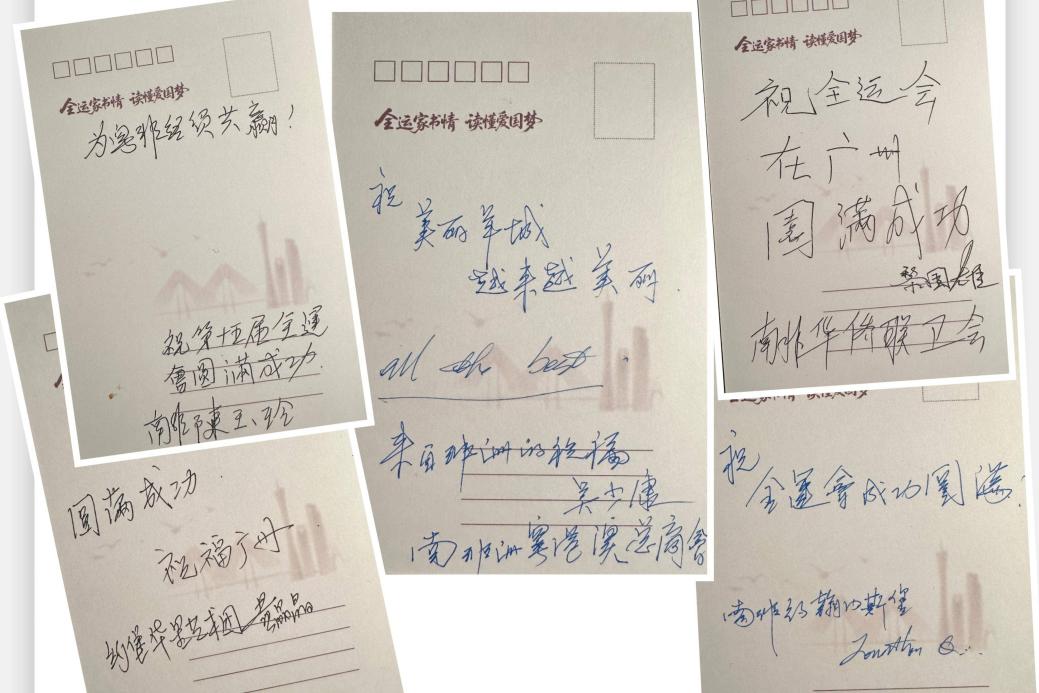 全运家书情 读懂爱国梦
为粤非经贸共赢！
祝第十五届全運
會圆满成功
南非陳玉玲
全运家书情 读懂爱国梦
祝
美丽羊城
越来越美丽.
all the best.
来自非洲的祝福
吴少康
南部非洲粤港澳总商會
全运家书情 读懂爱国梦
祝全运会
在广州
圆满成功
黎国雄
南非华侨联卫会
圆满成功.
祝福广州
约堡华星艺术团
祝
全運會成功圆满!
南非约翰内斯堡